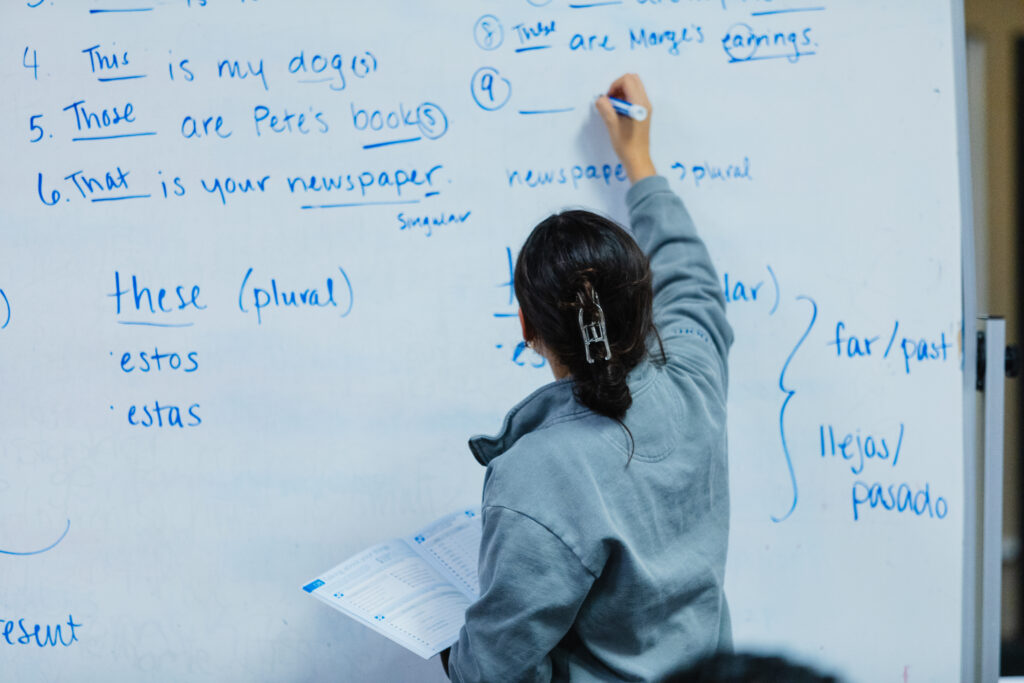 4 This is my dog(s)
5. Those are Pete's books
6. That is your newspaper.
singular
⑧ These are Marge's earrings.
⑨ ____
newspape → plural
these (plural)
· estos
· estas
lar)
far/past
llejos/
pasado
resent